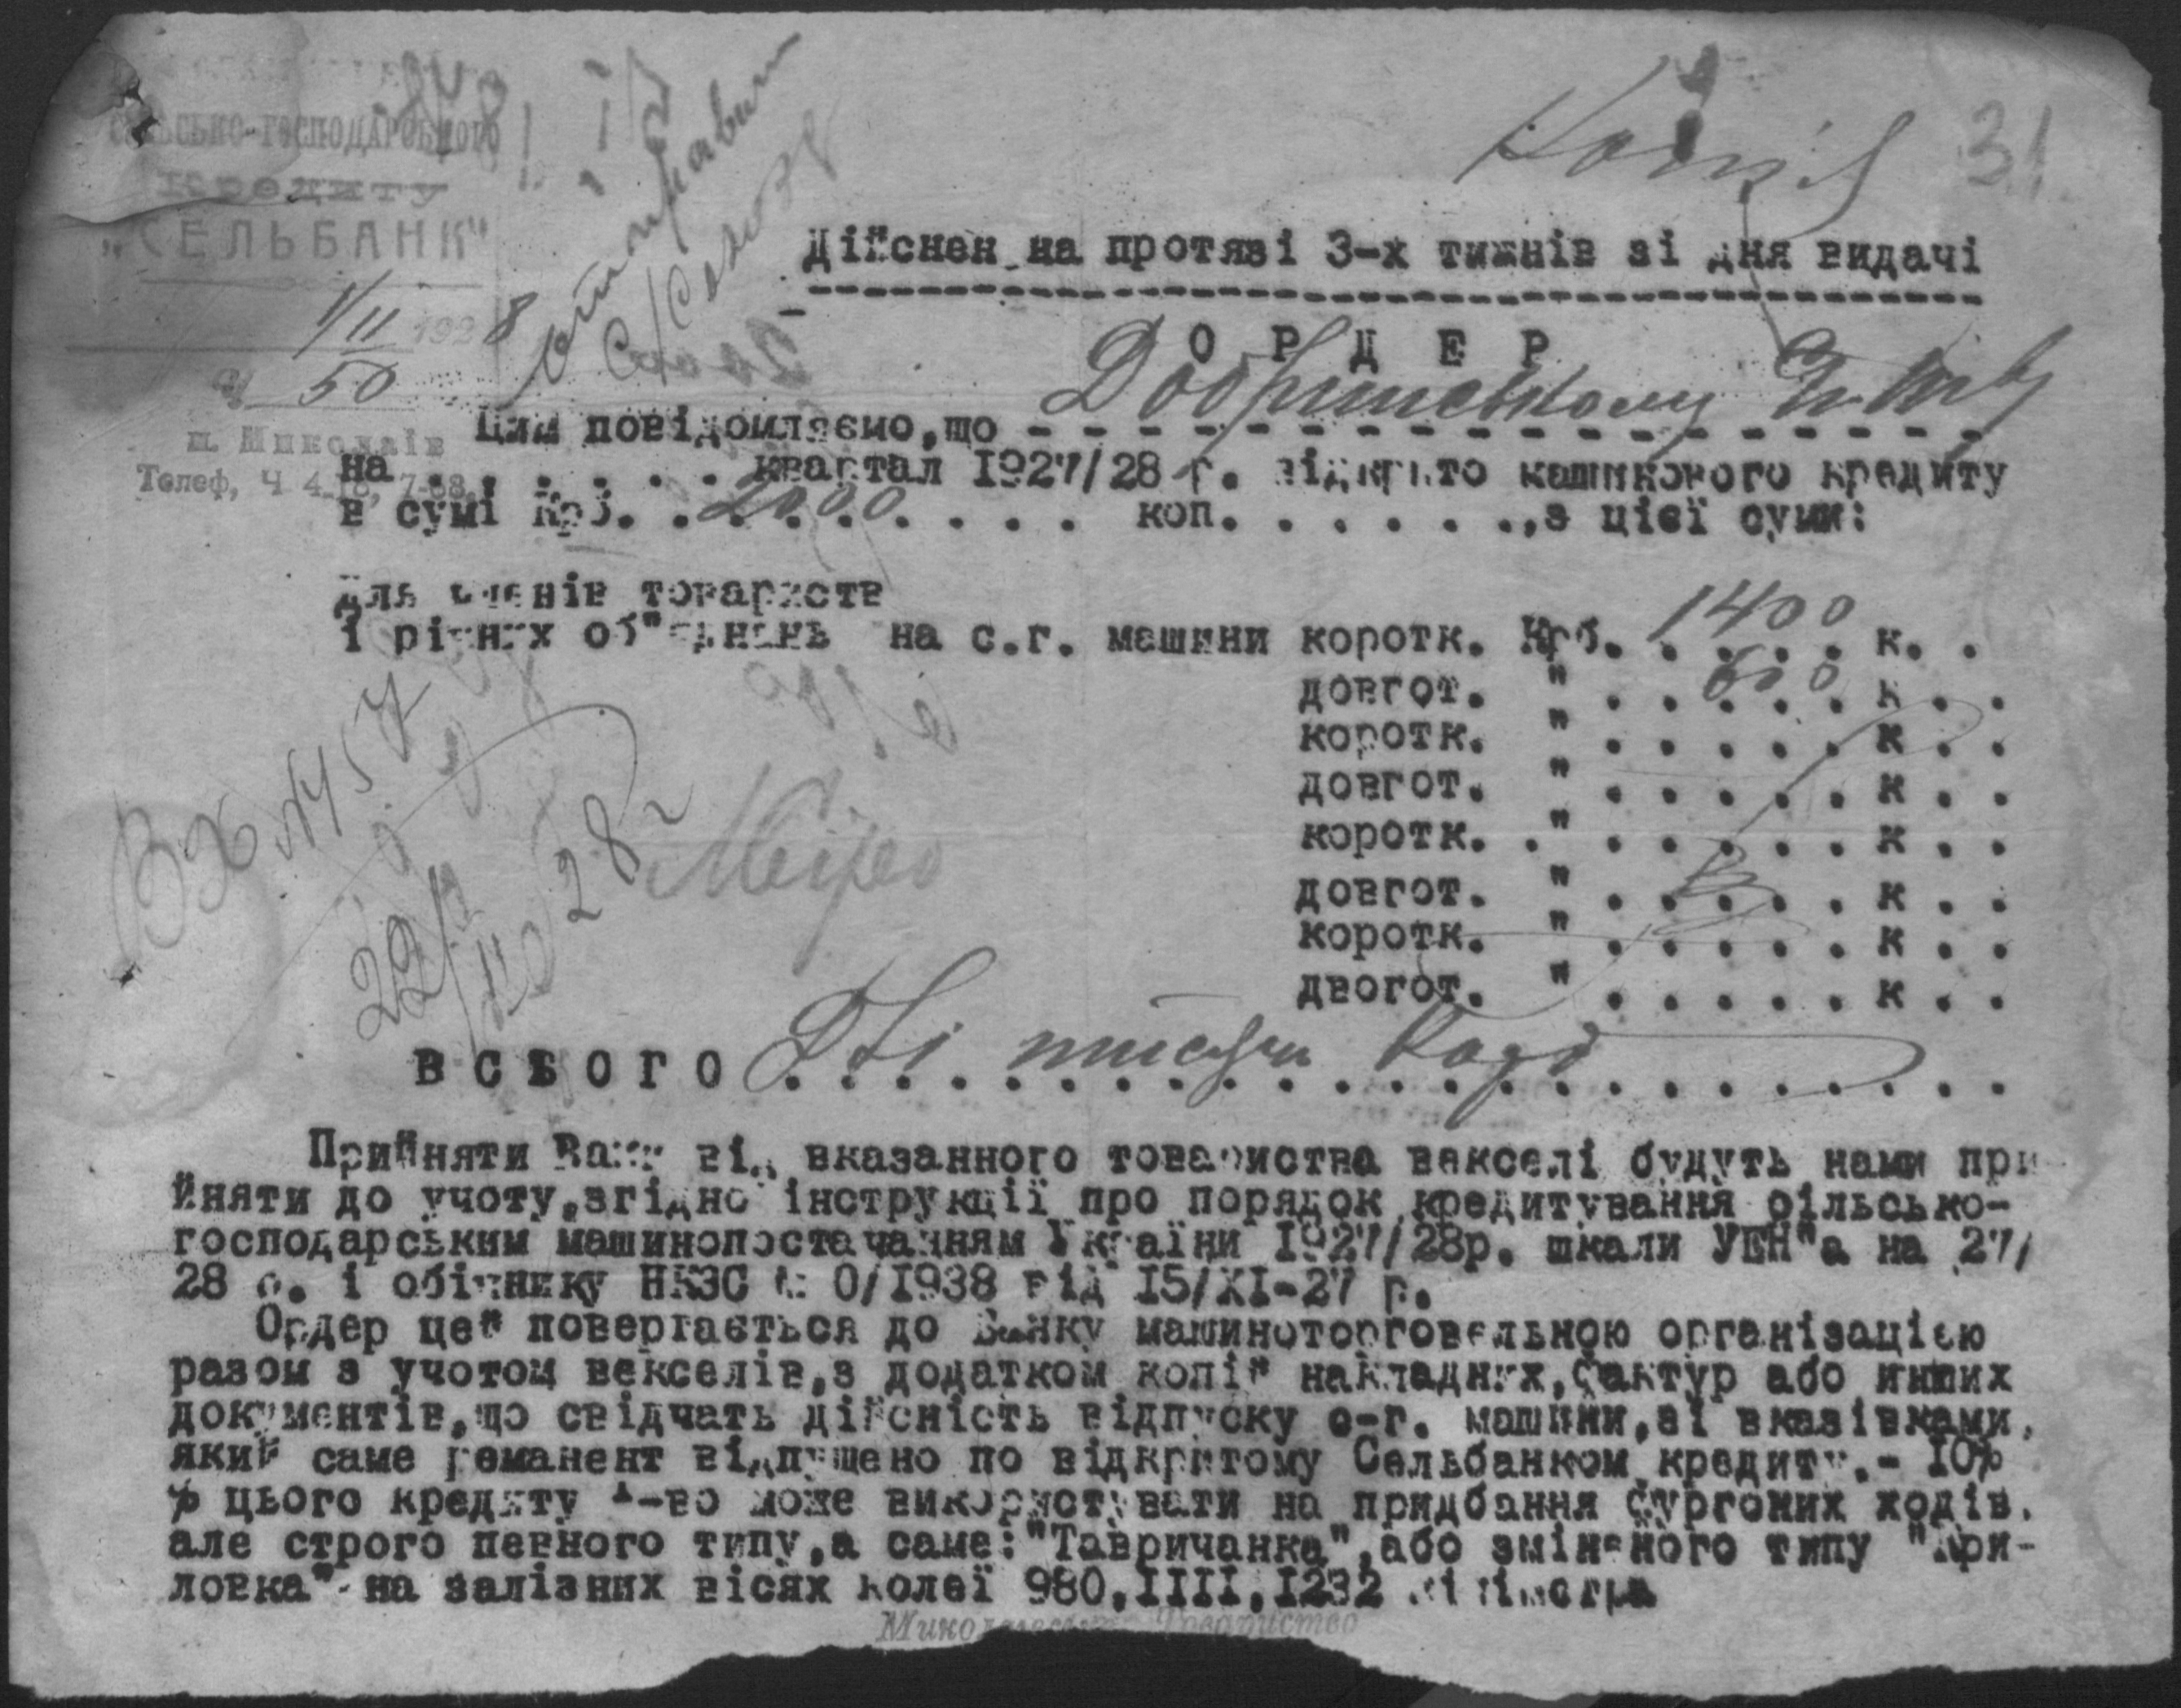 СІЛЬСЬКО-ГОСПОДАРСЬКОГО
Кредиту
„СЕЛЬБАНК"
1/II 1928
50
м. Миколаїв
Телеф, Ч 4-18, 7-68.
Копія
31
отправит
Дійснен на протязі 3-х тижнів зі дня видачі
ОРДЕР
Цим повідомляємо, що Добришевкому
на . . . . . . квартал 1927/28 г. відкрито машинового кредиту
в сумі Крб. . 2000 . . . . коп. . . . . . . ,з цієї суми:
Для членів товариств
і різних об"єднань на с.г. машини коротк. Крб. 1400 к. .
довгот. " . . 600 . к . .
коротк. " . . . . . к . .
довгот. " . . . . . к . .
коротк. . " . . . . . к . .
довгот. " . . . . . к . .
коротк. " . . . . . к . .
двогот. " . . . . . к . .
Вх №457
22/II 28 г
ВСЬОГО Дві тисячи карб
Прийняти Вами від вказанного товариства векселі будуть нами при
йняти до учоту,згідно інструкції про порядок кредитування сільсько-
господарським машинопостачанням України 1927/28р. шкали УЕН"а на 27/
28 р. і обіжнику НКЗС № 0/1938 від 15/XI-27 р.
Ордер цей повертається до Банку машиноторговельною організацією
разом з учотом векселів,з додатком копій накладних,фактур або инших
документів,що свідчать дійсність відпуску с-г. машини,зі вказівками,
який саме реманент відпущено по відкритому Сельбанком кредиту.- 10%
% цього кредиту т-во може використувати на придбання фургоних ходів,
але строго певного типу,а саме:"Тавричанка",або зміненого типу "Кри-
ловка" на залізних вісях колеї 980,1111,1232 міліметра
Миколаївське Товариство